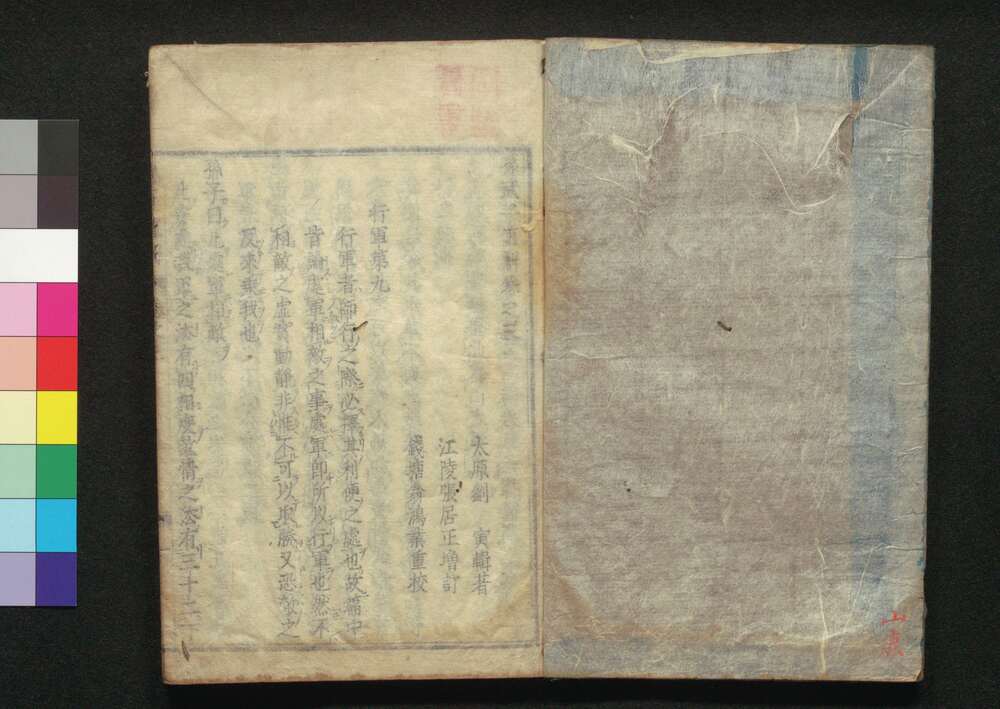 太原劉　寅輯著
江陵張居正增訂
錢塘翁鴻業重校
行軍第九
行軍者師行之際必擇其利便之處也故篇中
皆論處軍相敵之事處軍即所以行軍也然不
相敵之虛實動靜非惟不可以取勝又恐敵之
反來乘我也
孫子曰凡處軍相敵
之法有四相度敵情之法有三十二